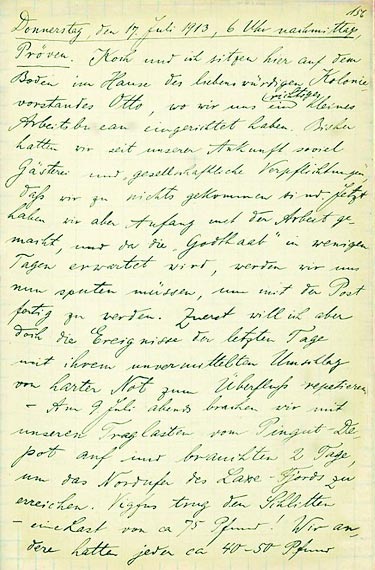 156
Donnerstag, den 17. Juli 1913, 6 Uhr nachmittags,
Pröven. Koch und ich sitzen hier auf dem
Boden im Hause des liebenswürdigen Kolonie
vorstandes Otto, wo wir uns ein richtiges kleines
Arbeitsbureau eingerichtet haben. Bisher
hatten wir seit unserer Ankunft soviel
Gästerei und gesellschaftliche Verpflichtungen,
daß wir zu nichts gekommen sind. Jetzt
haben wir aber Anfang mit der Arbeit ge-
macht, und da die "Godthaab" in wenigen
Tagen erwartet wird, werden wir uns
nun sputen müssen, um mit der Post
fertig zu werden. Zuerst will ich aber
doch die Ereignisse der letzten Tage
mit ihrem unvermittelten Umschlag
von harter Not zum Überfluß repetieren
- Am 9 Juli abends brachen wir mit
unseren Traglasten vom Pingut-De-
pot auf und brauchten 2 Tage,
um das Nordufer des Laxe-Fjords zu
erreichen. Vigfus trug den Schlitten
- eine Last von ca 75 Pfund! Wir an-
dere hatten jeder ca 40-50 Pfund